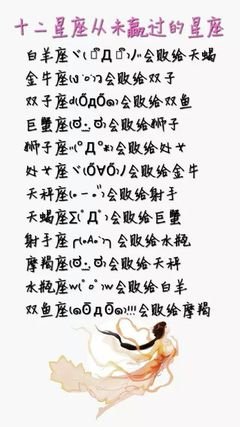 十二星座从未赢过的星座
白羊座ヾ(｡ˋДˊ｡)ﾉ会败给天蝎
金牛座(ง •̀o•́)ง会败给双子
双子座d(ŐдŐ๑)会败给双鱼
巨蟹座(ಠ .̫.̫ ಠ)会败给狮子
狮子座"(ºДº*)会败给处女
处女座(Ő∀Ő)ﾉ会败给金牛
天秤座(๑–̀–́)会败给射手
天蝎座Σ(ﾟДﾟ)会败给巨蟹
射手座╭(๑¯д¯๑)╮会败给水瓶
摩羯座(ಠ .̫.̫ ಠ)会败给天秤
水瓶座w(ﾟoﾟ)w会败给白羊
双鱼座(๑ŐдŐ๑)!!!会败给摩羯